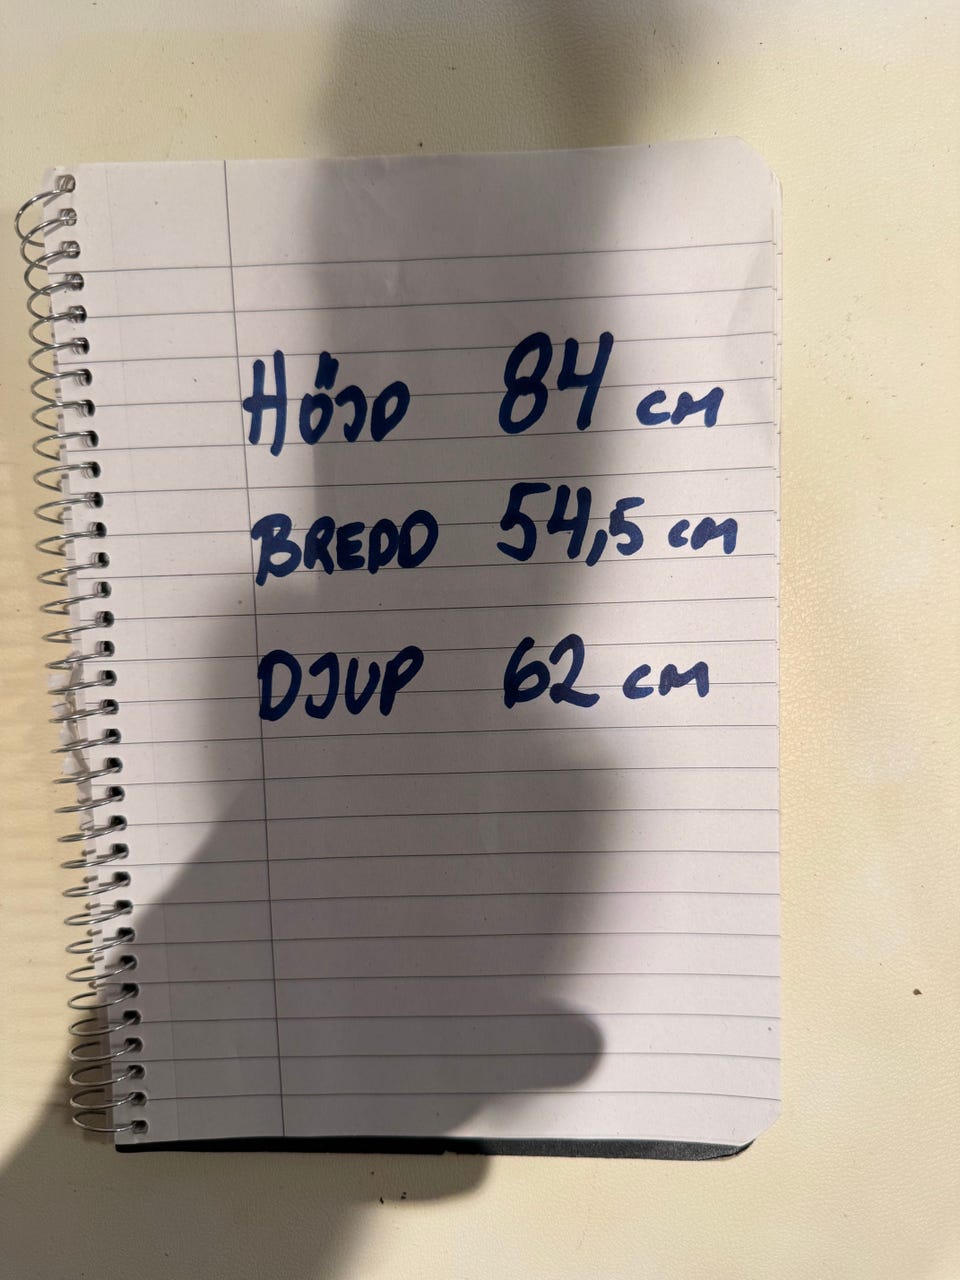 Höjd 84 cm
BREDD 54,5 cm
DJUP 62 cm